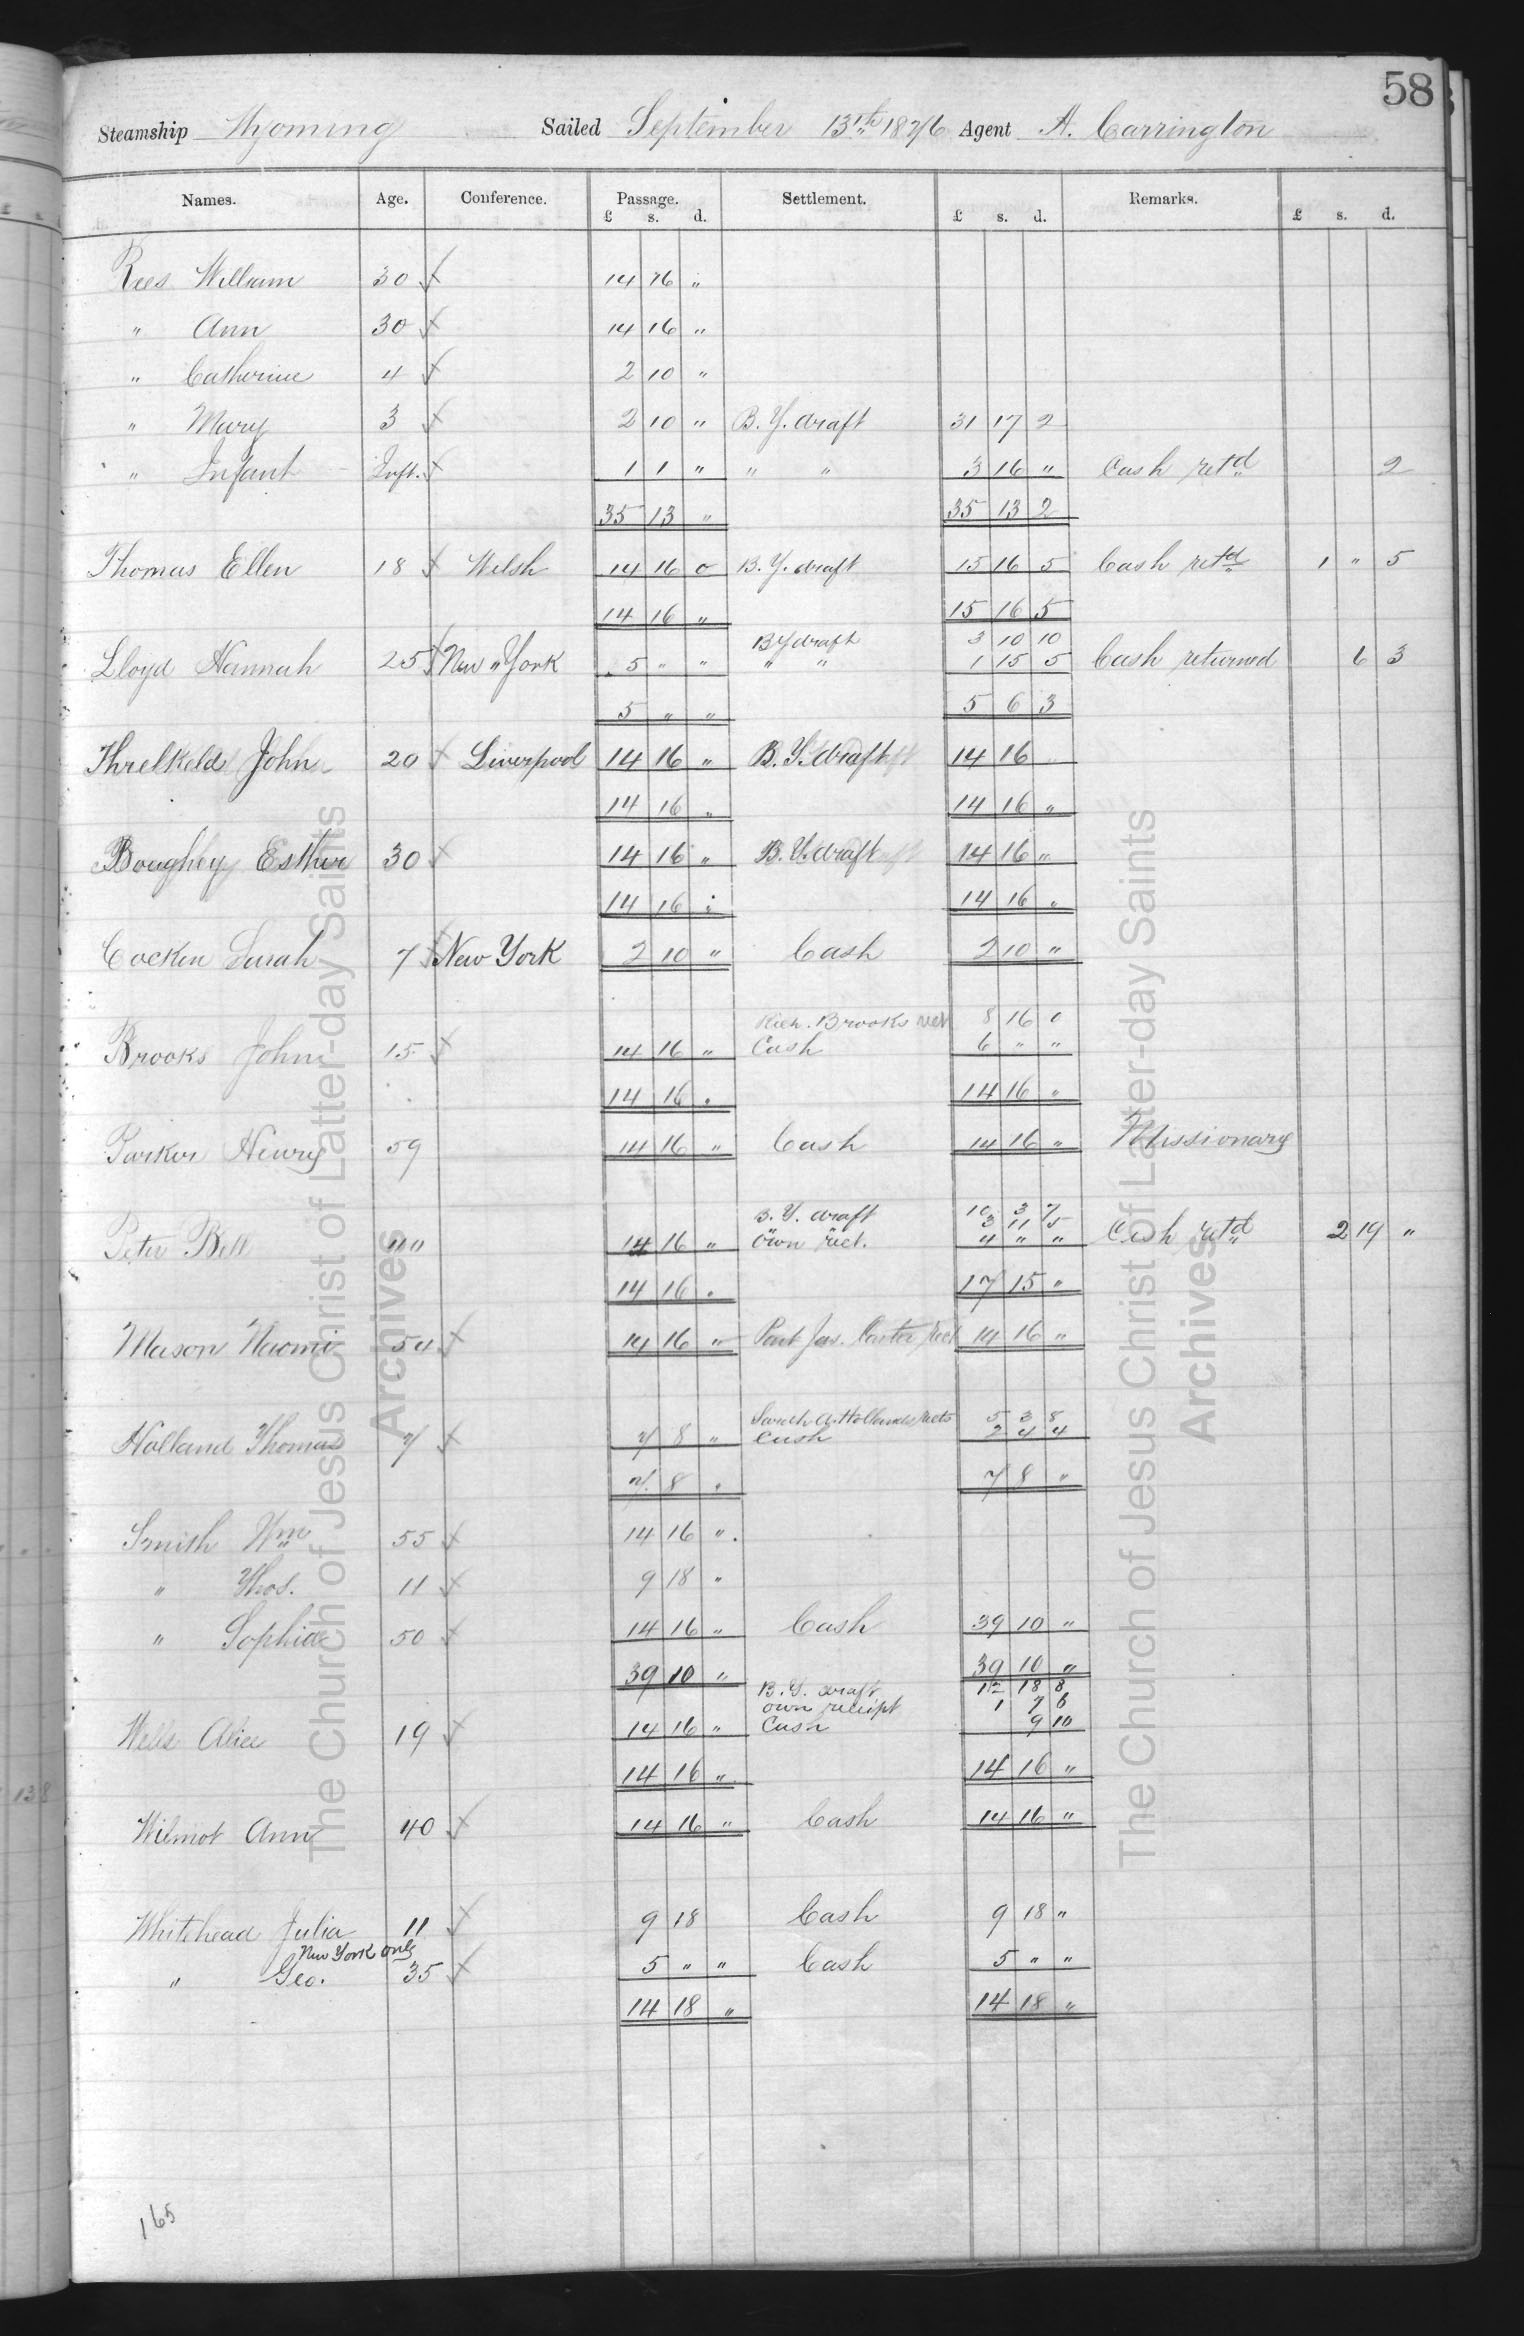 58
Steamship Wyoming Sailed September 13th 1876 Agent A. Carrington
Names. Age. Conference. Passage. Settlement. Remarks.
£ s. d. £ s. d. £ s. d.
Rees William 30 14 16 "
" Ann 30 14 16 "
" Catherine 4 2 10 "
" Mary 3 2 10 " B. Y. draft 31 17 2
" Infant Inft. 1 1 " " " 3 16 " Cash retd 2
35 13 " 35 13 2
Thomas Ellen 18 Welsh 14 16 0 B. Y. draft 15 16 5 Cash retd 1 " 5
14 16 " 15 16 5
B Y draft 3 10 10
Lloyd Hannah 25 New York 5 " " " " 1 15 5 Cash returned 6 3
5 " " 5 6 3
Threlkeld John 20 Liverpool 14 16 " B. Y. draft 14 16
14 16 " 14 16 "
Boughey Esther 30 14 16 " B. Y. draft 14 16 "
14 16 " 14 16 "
Cocken Sarah 7 New York 2 10 " Cash 2 10 "
Rich. Brooks rect 8 16 0
Brooks John 15 14 16 " Cash 6 " "
14 16 " 14 16 "
Parker Henry 59 14 16 " Cash 14 16 " Missionary
B. Y. draft 10 3 7
" " 3 11 5
Peter Bell 40 14 16 " own rect. 4 " " Cash retd 2 19 "
14 16 " 17 15 "
Mason Naomi 54 14 16 " Part Jas. Carter rect 14 16 "
Sarah A. Hollands rects 5 3 8
Holland Thomas 7 7 8 " Cash 2 4 4
7 8 " 7 8 "
Smith Wm 55 14 16 "
" Thos. 11 9 18 "
" Sophia 50 14 16 " Cash 39 10 "
39 10 " 39 10 "
B. Y. draft 12 18 8
own receipt 1 7 6
Wells Alice 19 14 16 " Cash 9 10
14 16 " 14 16 "
Wilmot Ann 40 14 16 " Cash 14 16 "
Whitehead Julia 11 9 18 Cash 9 18 "
New York only
" Geo. 35 5 " " Cash 5 " "
14 18 " 14 18 "
165
The Church of Jesus Christ of Latter-day Saints
Archives
The Church of Jesus Christ of Latter-day Saints
Archives